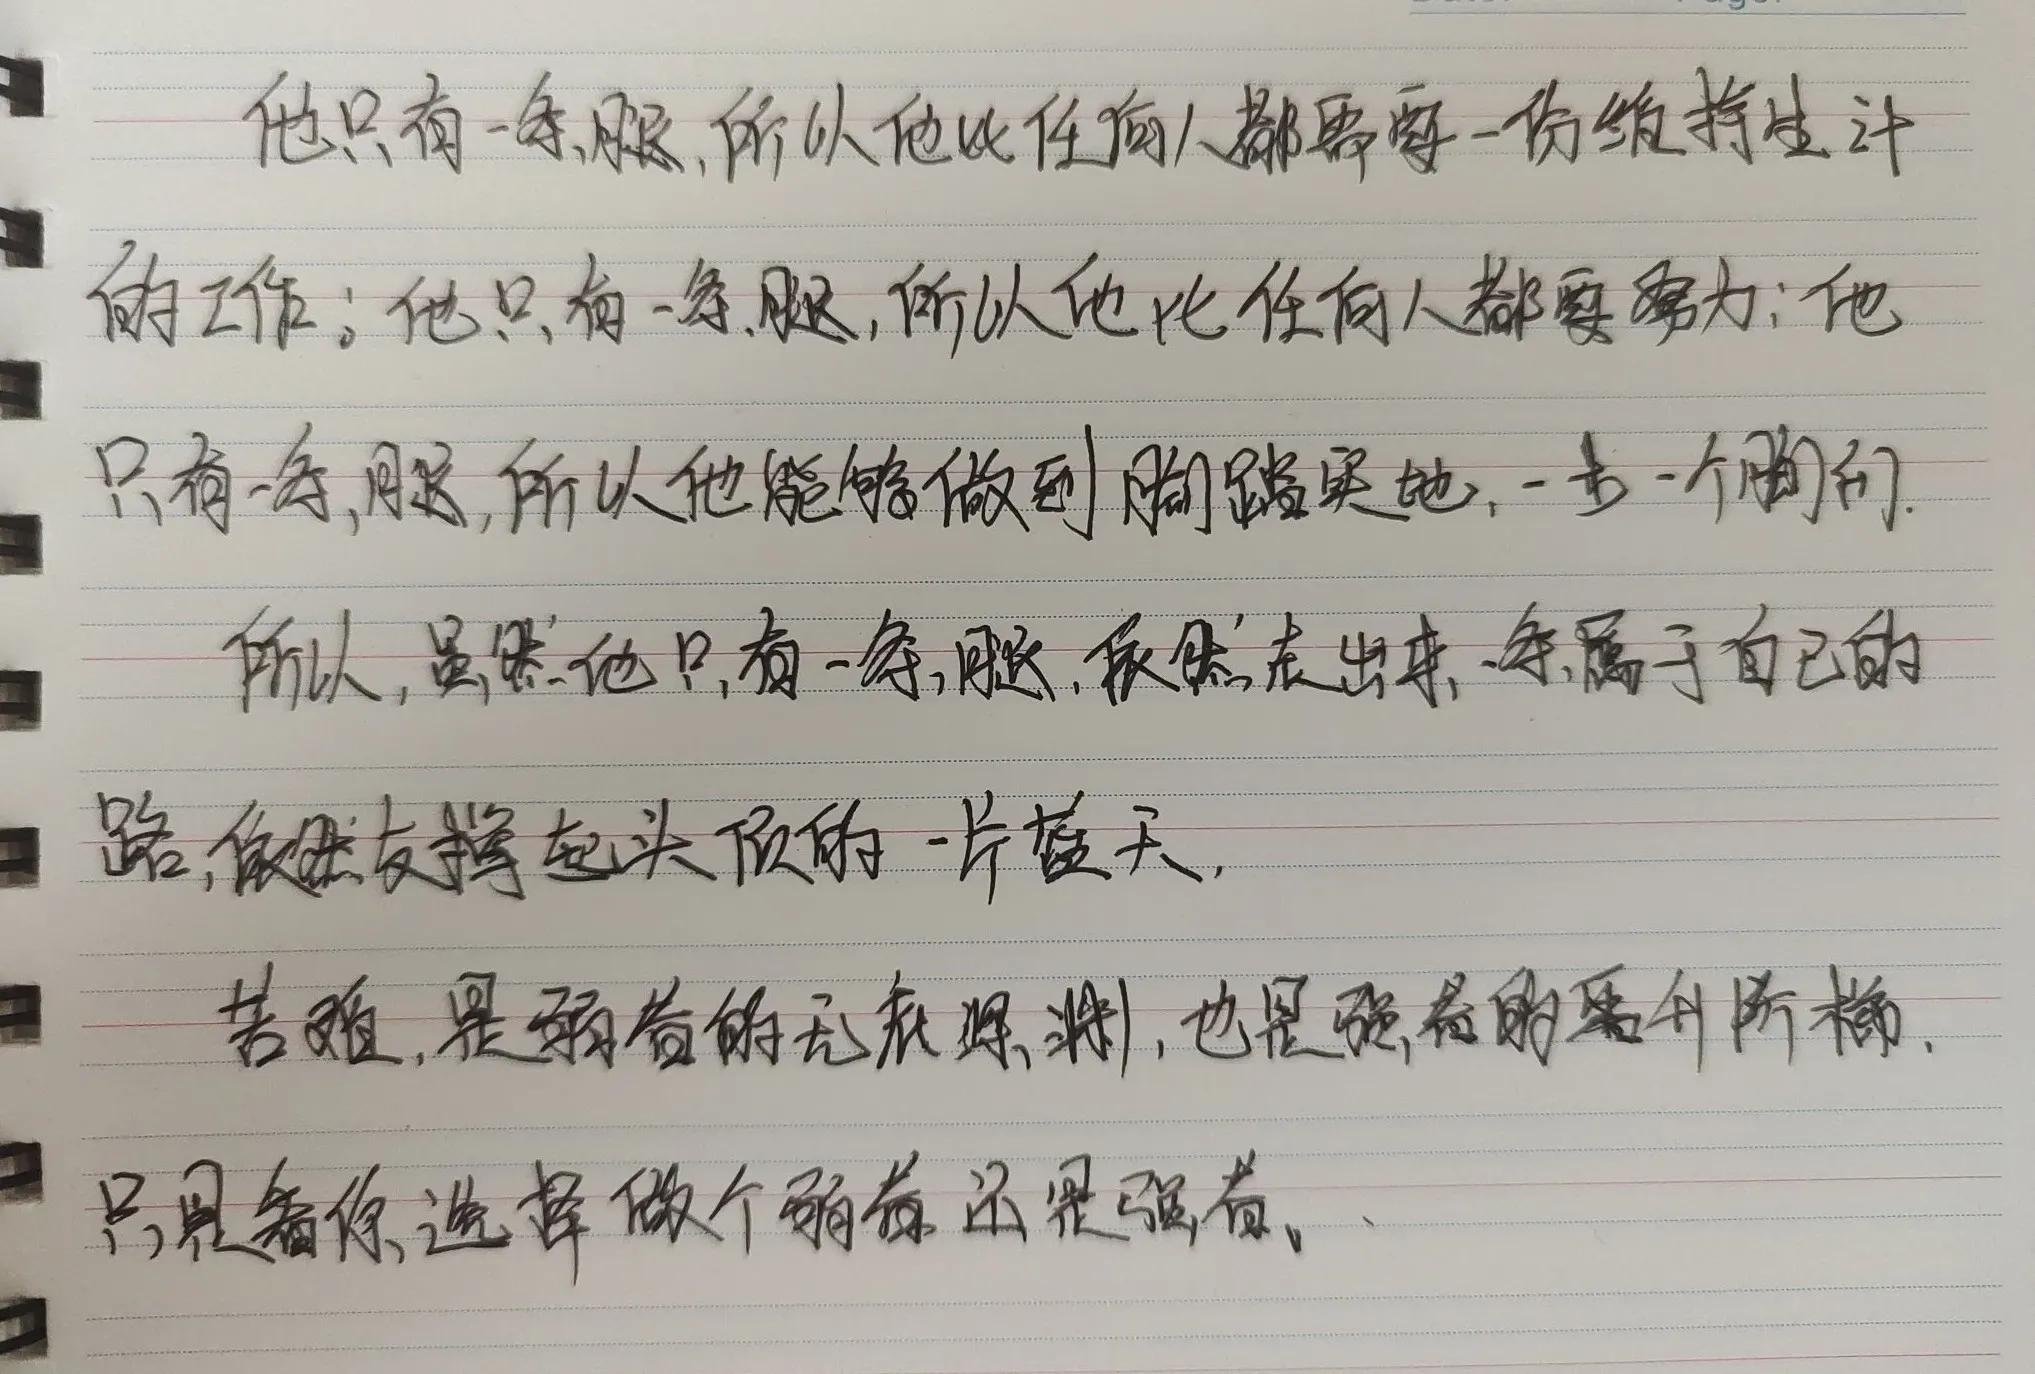 他只有一条腿,所以他比任何人都需要一份维持生计
的工作;他只有一条腿,所以他比任何人都要努力;他
只有一条腿,所以他能够做到脚踏实地,一步一个脚印.
所以,虽然他只有一条腿,依然走出来一条属于自己的
路,依然支撑起头顶的一片蓝天.
苦难,是弱者的无底深渊,也是强者的晋升阶梯.
只是看你选择做个弱者还是强者、